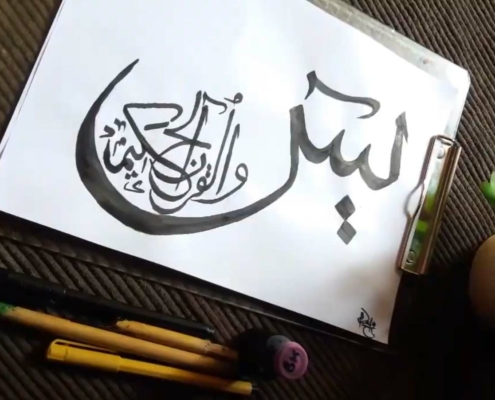 يس
والقرآن الحكيم